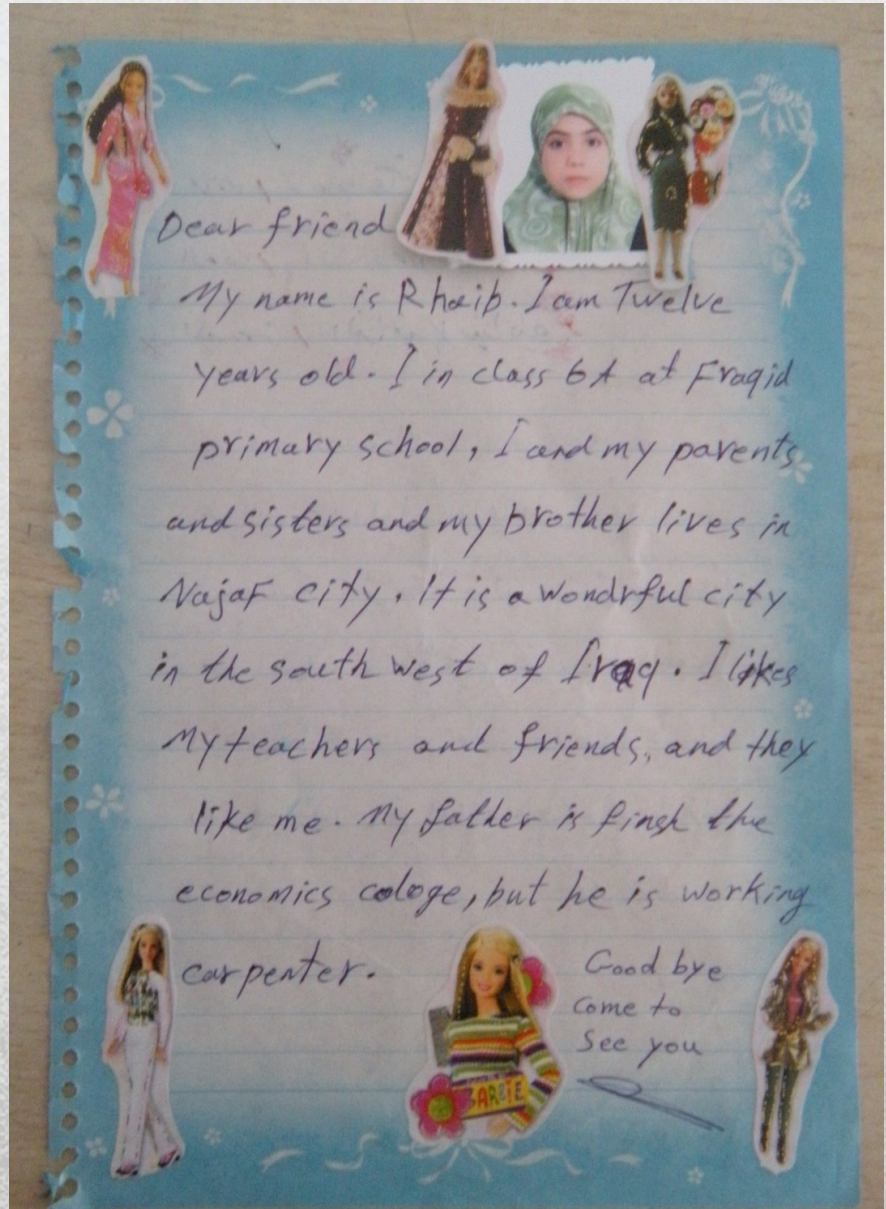 Dear friend
My name is Rhaib. I am Twelve
years old. I in class 6A at Fraqid
primary school, I and my parents
and sisters and my brother lives in
Najaf city. It is a wondrful city
in the south west of Iraq. I likes
My teachers and friends, and they
like me. My father is finsh the
economics cologe, but he is working
carpenter.
Good bye
come to
see you